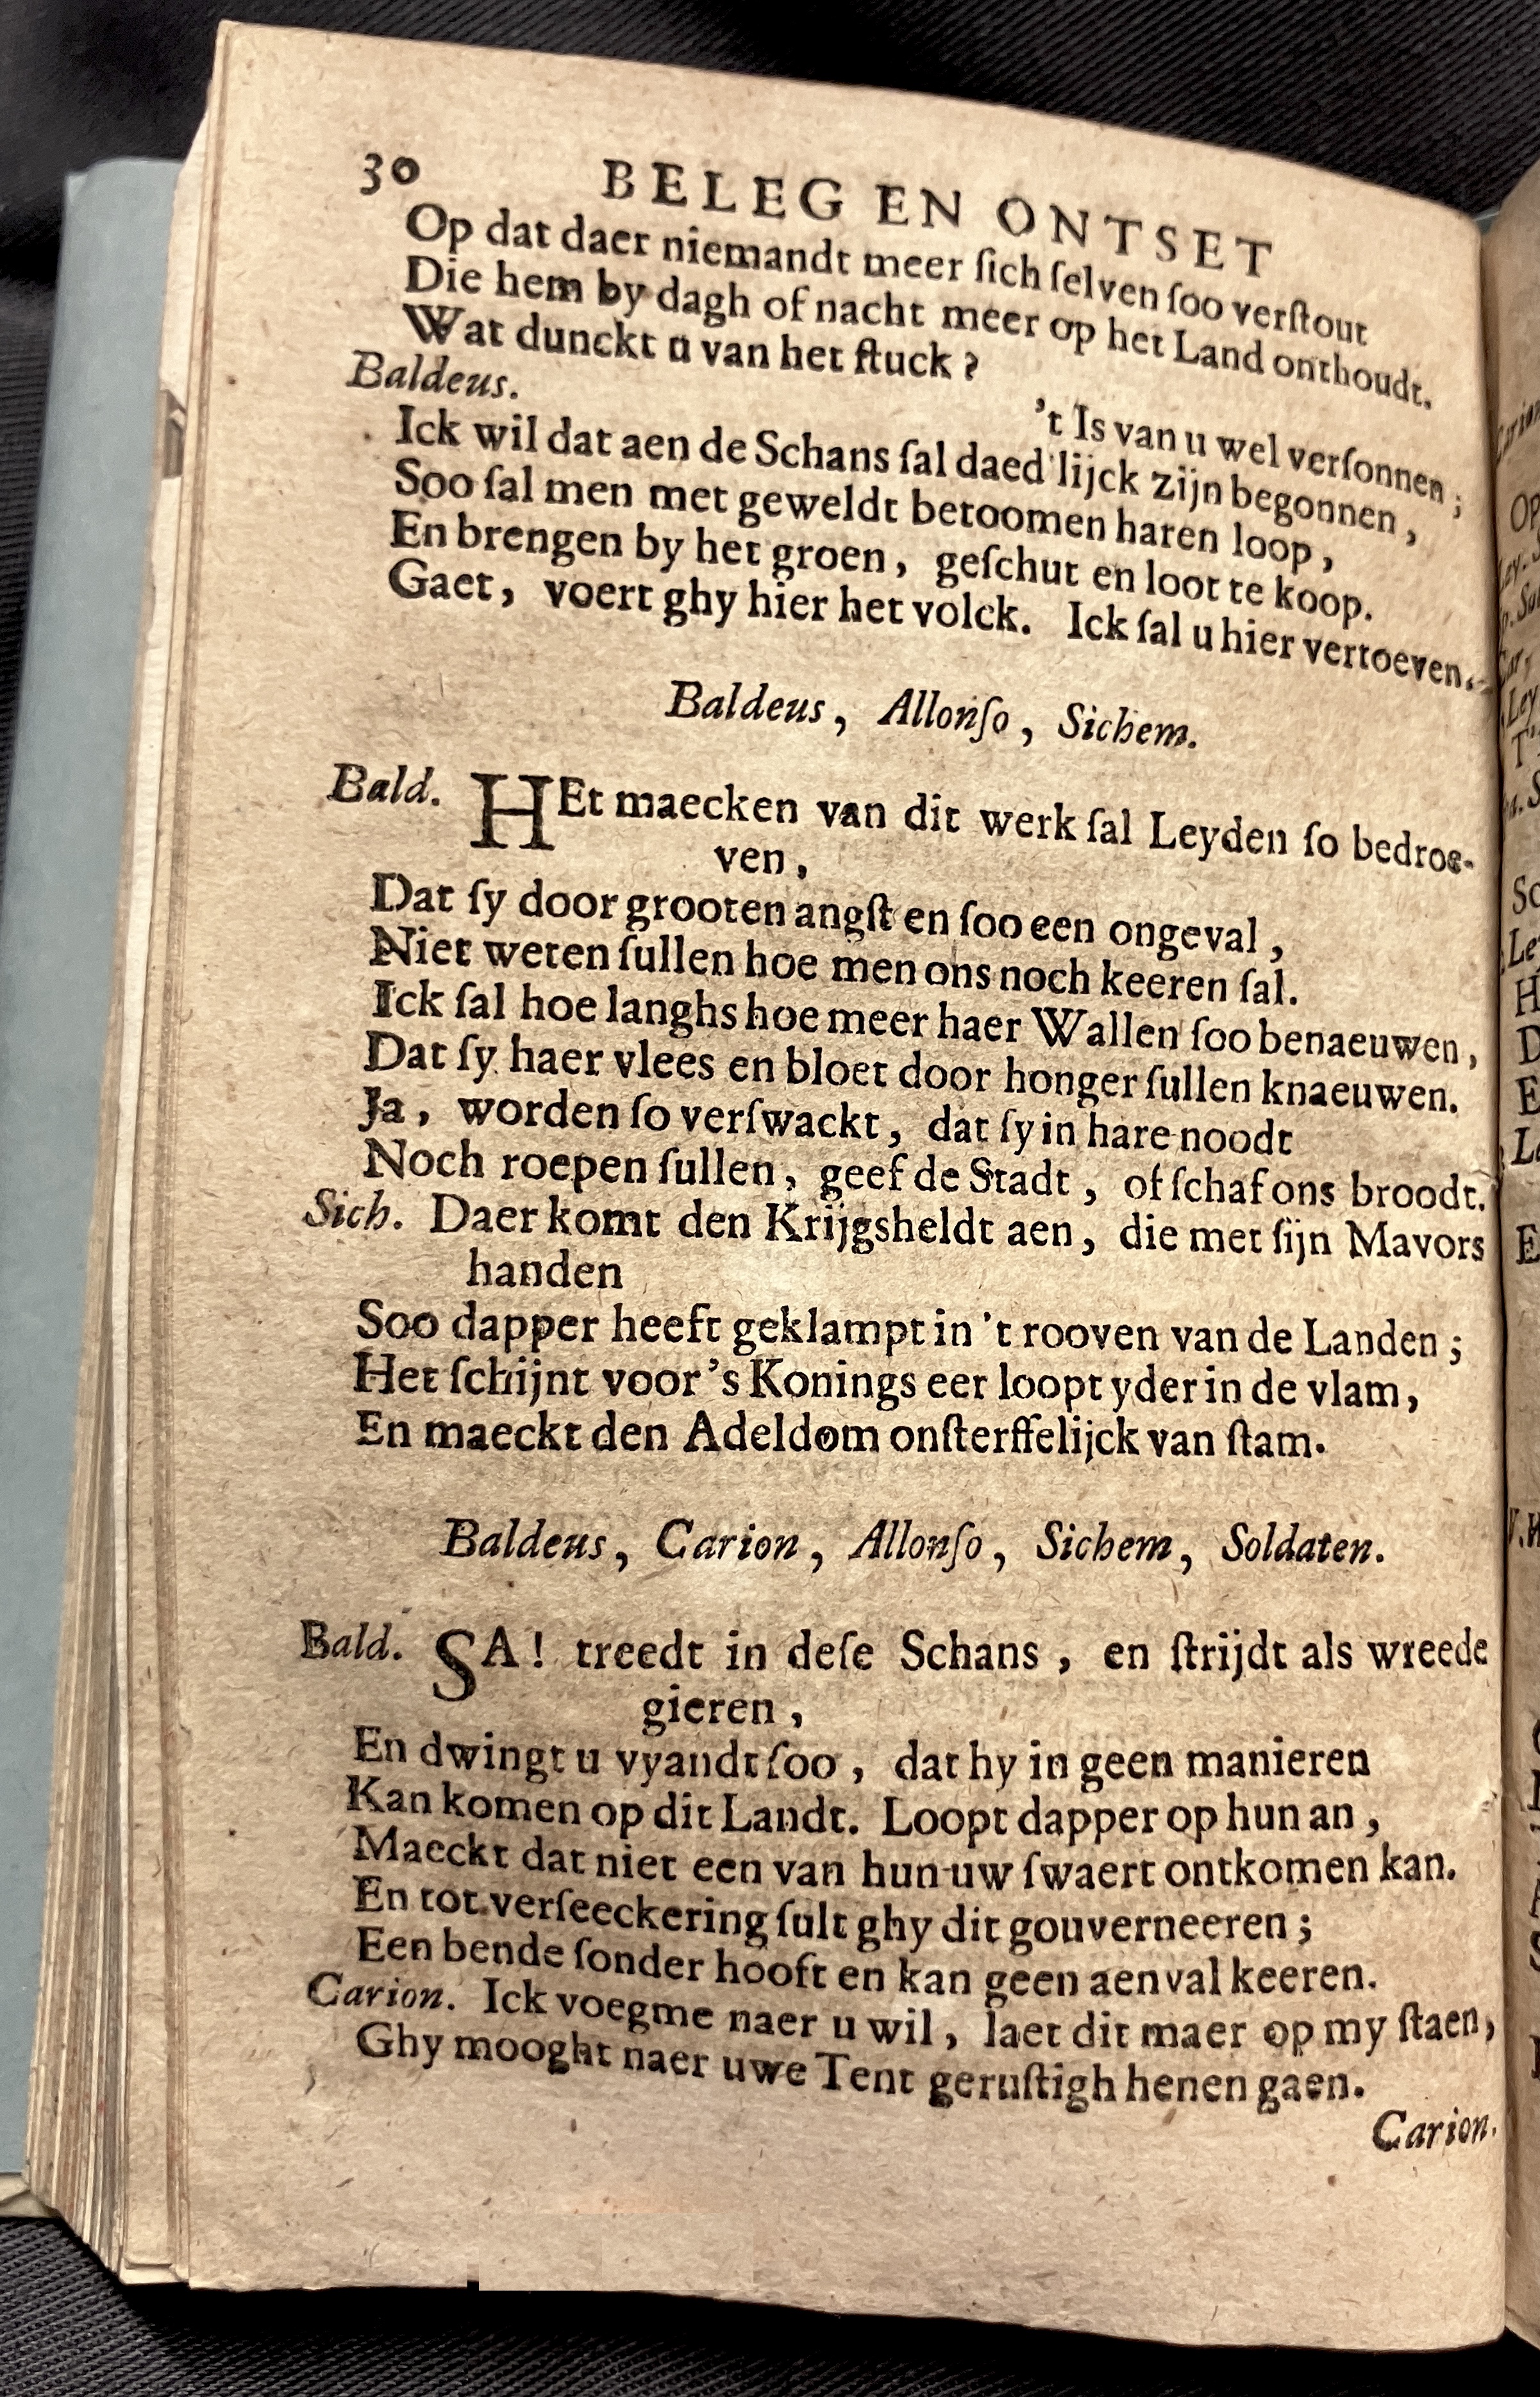 30 BELEG EN ONTSET
Op dat daer niemandt meer ſich ſelven ſoo verſtout
Die hem by dagh of nacht meer op het Land onthoudt.
Wat dunckt u van het ſtuck?
Baldeus.
't Is van u wel verſonnen;
Ick wil dat aen de Schans ſal daed'lijck zijn begonnen,
Soo ſal men met geweldt betoomen haren loop,
En brengen by het groen, geſchut en loot te koop.
Gaet, voert ghy hier het volck. Ick ſal u hier vertoeven.
Baldeus, Allonſo, Sichem.
Bald. HEt maecken van dit werk ſal Leyden ſo bedroe-
ven,
Dat ſy door grooten angſt en ſoo een ongeval,
Niet weten ſullen hoe men ons noch keeren ſal.
Ick ſal hoe langhs hoe meer haer Wallen ſoo benaeuwen,
Dat ſy haer vlees en bloet door honger ſullen knaeuwen.
Ja, worden ſo verſwackt, dat ſy in hare noodt
Noch roepen ſullen, geef de Stadt, of ſchaf ons broodt.
Sich. Daer komt den Krijgsheldt aen, die met ſijn Mavors
handen
Soo dapper heeft geklampt in 't rooven van de Landen;
Het ſchijnt voor 's Konings eer loopt yder in de vlam,
En maeckt den Adeldom onſterffelijck van ſtam.
Baldeus, Carion, Allonſo, Sichem, Soldaten.
Bald. SA! treedt in deſe Schans, en ſtrijdt als wreede
gieren,
En dwingt u vyandt ſoo, dat hy in geen manieren
Kan komen op dit Landt. Loopt dapper op hun an,
Maeckt dat niet een van hun uw ſwaert ontkomen kan.
En tot verſeeckering ſult ghy dit gouverneeren;
Een bende ſonder hooft en kan geen aenval keeren.
Carion. Ick voegme naer u wil, laet dit maer op my ſtaen,
Ghy mooght naer uwe Tent geruſtigh henen gaen.
Carion.